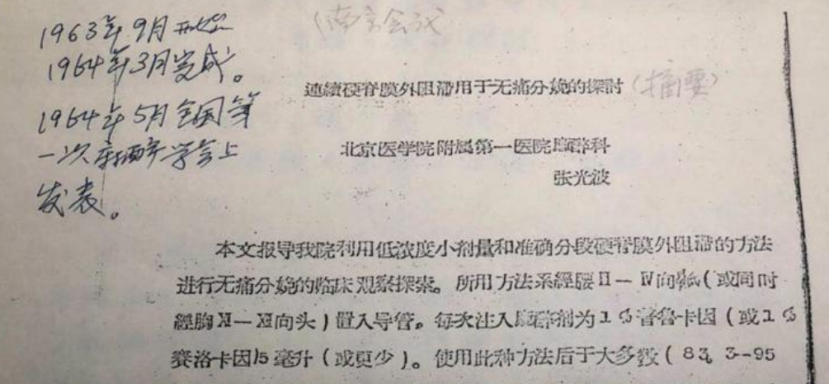 1963年9月开始
1964年3月完成。
1964年5月全国第
一次麻醉学会上
发表。
(南京会议
連續硬脊膜外阻滯用于无痛分娩的探討(摘要)
北京医学院附属第一医院麻醉科
张光波
本文报导我院利用低浓度小剂量和准确分段硬脊膜外阻滯的方法
进行无痛分娩的临床观察探索。所用方法系經腰II—IV向骶(或同时
經胸XI—XII向头)置入导管。每次注入麻醉剂为1%普鲁卡因(或1%
赛洛卡因)5毫升(或更少)。使用此种方法后于大多数(83.3—95